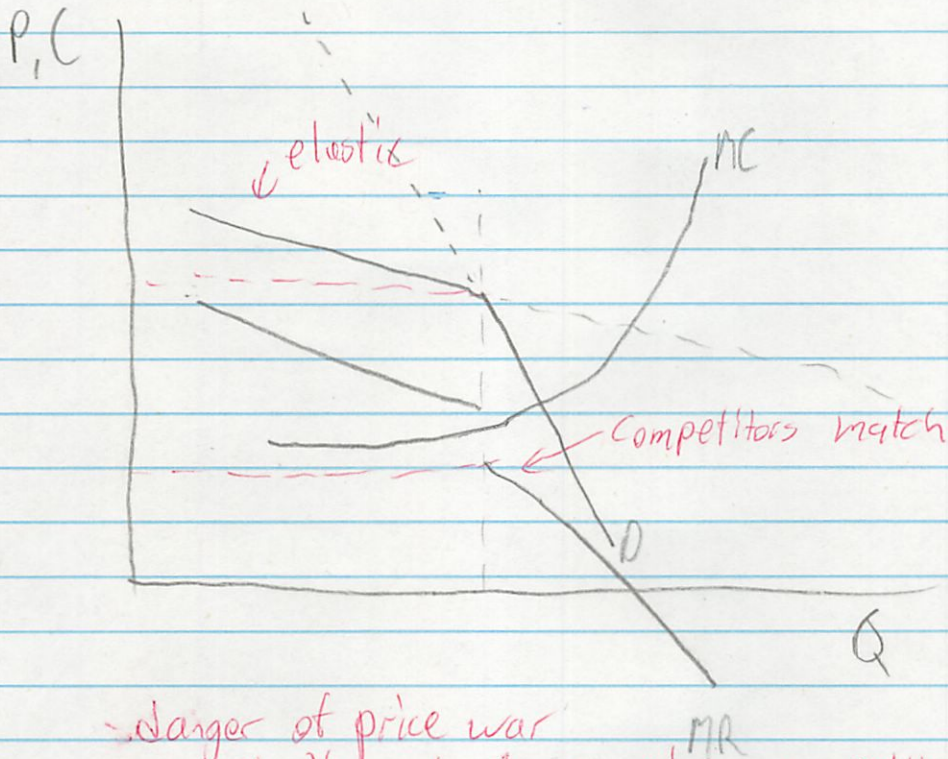 P, C
elastic
MC
Competitors match
D
Q
- danger of price war
MR